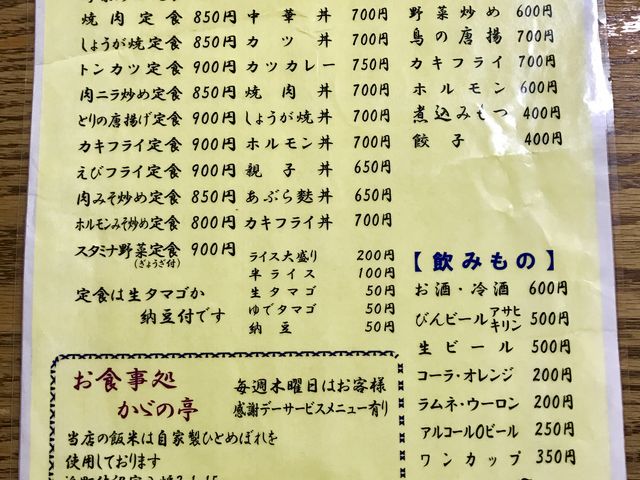 焼肉定食 850円
しょうが焼定食 850円
トンカツ定食 900円
肉ニラ炒め定食 850円
とりの唐揚げ定食 900円
カキフライ定食 900円
えびフライ定食 900円
肉みそ炒め定食 850円
ホルモンみそ炒め定食 800円
スタミナ野菜定食 900円
(ぎょうざ付)
定食は生タマゴか
納豆付です
中華丼 700円
カツ丼 700円
カツカレー 750円
焼肉丼 700円
しょうが焼丼 700円
ホルモン丼 700円
親子丼 650円
あぶら麩丼 650円
カキフライ丼 700円
ライス大盛り 200円
半ライス 100円
生タマゴ 50円
ゆでタマゴ 50円
納豆 50円
野菜炒め 600円
鳥の唐揚 700円
カキフライ 700円
ホルモン 600円
煮込みもつ 400円
餃子 400円
【飲みもの】
お酒・冷酒 600円
びんビール アサヒ キリン 500円
生ビール 500円
コーラ・オレンジ 200円
ラムネ・ウーロン 200円
アルコール0ビール 250円
ワンカップ 350円
お食事処
かどの亭
毎週木曜日はお客様
感謝デーサービスメニュー有り
当店の飯米は自家製ひとめぼれを
使用しております